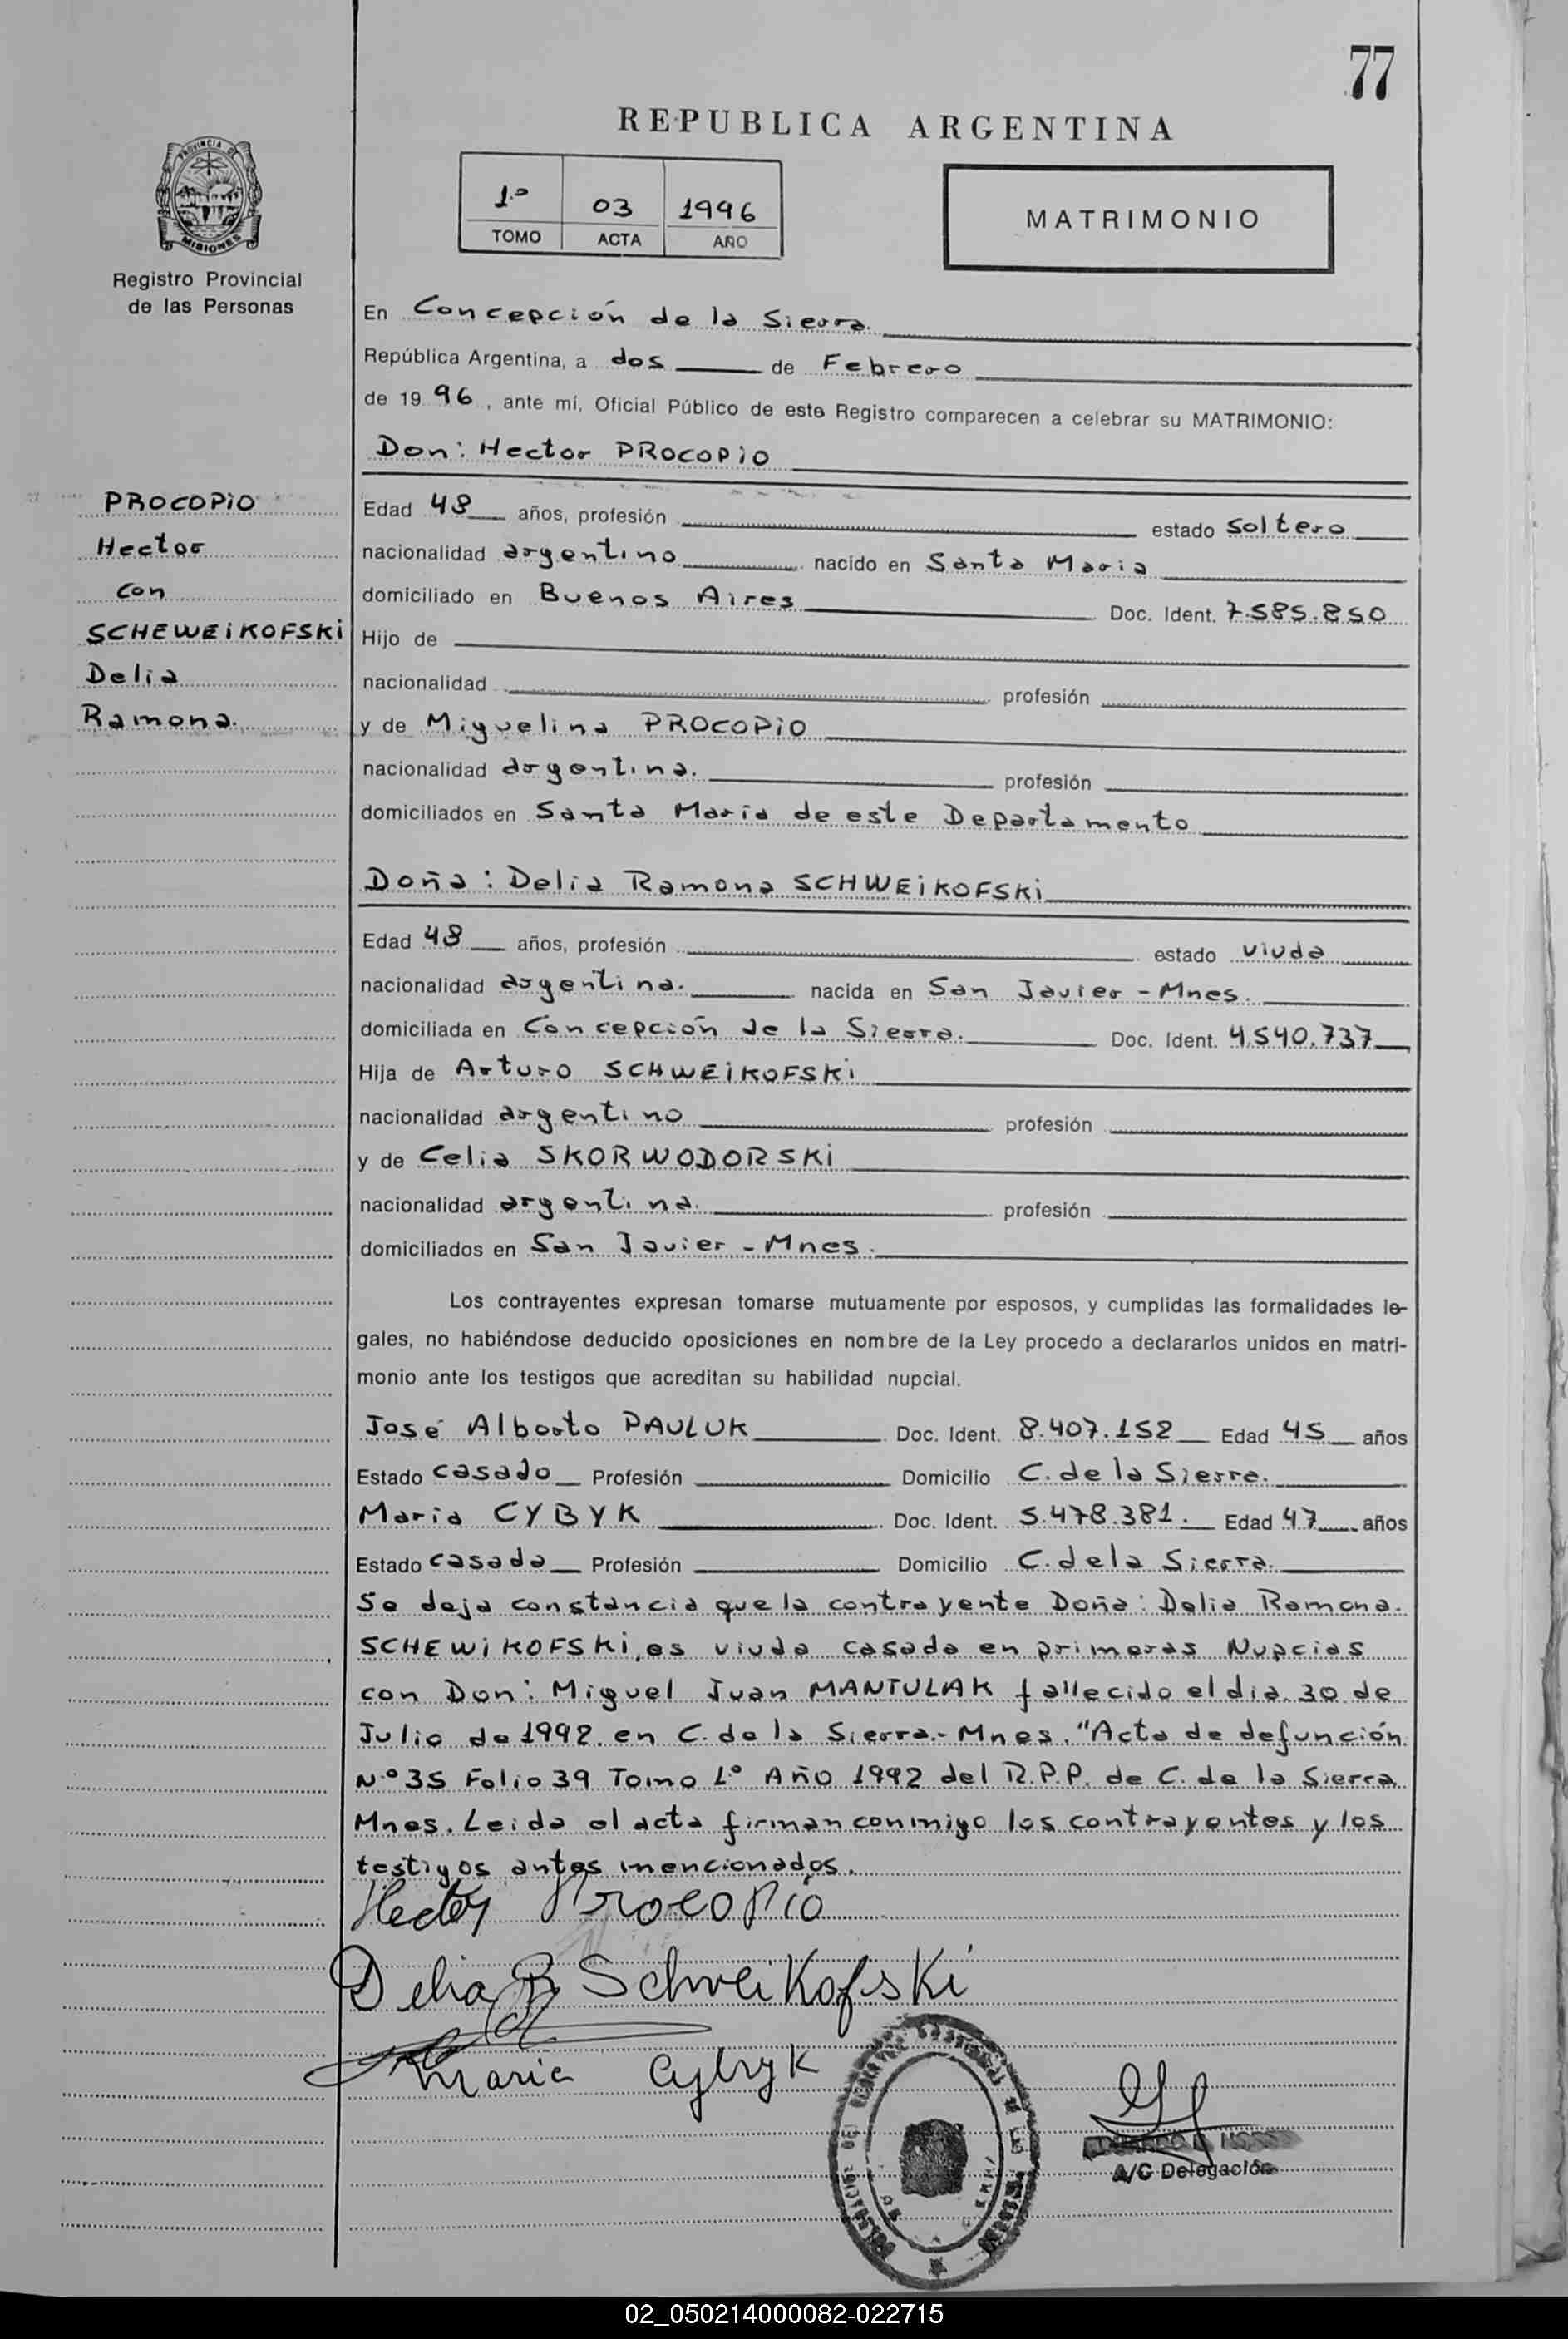 77
REPUBLICA ARGENTINA
PROVINCIA DE
MISIONES
Registro Provincial
de las Personas
1.º 03 1996
TOMO ACTA AÑO
MATRIMONIO
En Concepción de la Sierra.
República Argentina, a dos de Febrero
de 19 96, ante mí, Oficial Público de este Registro comparecen a celebrar su MATRIMONIO:
Don: Hector PROCOPiO
PROCOPiO
Hector
con
SCHEWEiKOFSKi
Delia
Ramona.
Edad 48 años, profesión estado soltero
nacionalidad argentino nacido en Santa Maria
domiciliado en Buenos Aires Doc. Ident. 7.585.850
Hijo de
nacionalidad profesión
y de Miguelina PROCOPiO
nacionalidad argentina. profesión
domiciliados en Santa María de este Departamento
Doña: Delia Ramona SCHWEiKOFSKi
Edad 48 años, profesión estado viuda
nacionalidad argentina. nacida en San Javier - Mnes.
domiciliada en Concepción de la Sierra. Doc. Ident. 4.540.737
Hija de Arturo SCHWEiKOFSKi
nacionalidad argentino profesión
y de Celia SKORWODORSKi
nacionalidad argentina. profesión
domiciliados en San Javier - Mnes.
Los contrayentes expresan tomarse mutuamente por esposos, y cumplidas las formalidades le-
gales, no habiéndose deducido oposiciones en nombre de la Ley procedo a declararlos unidos en matri-
monio ante los testigos que acreditan su habilidad nupcial.
José Alberto PAULUK Doc. Ident. 8.407.152 Edad 45 años
Estado casado Profesión Domicilio C. de la Sierra.
Maria CYBYK Doc. Ident. 5.478.381. Edad 47 años
Estado casada Profesión Domicilio C. de la Sierra.
Se deja constancia que la contrayente Doña: Delia Ramona.
SCHEWiKOFSKi, es viuda casada en primeras Nupcias
con Don: Miguel Juan MANTULAK fallecido el dia 30 de
Julio de 1992 en C. de la Sierra.- Mnes. "Acta de defunción
N.º 35 Folio 39 Tomo 1º Año 1992 del R.P.P. de C. de la Sierra
Mnes. Leida el acta firman conmigo los contrayentes y los
testigos antes mencionados.
Hector Procopio
Delia R Schweikofski
Maria Cybyk
A/C Delegación
02_050214000082-022715